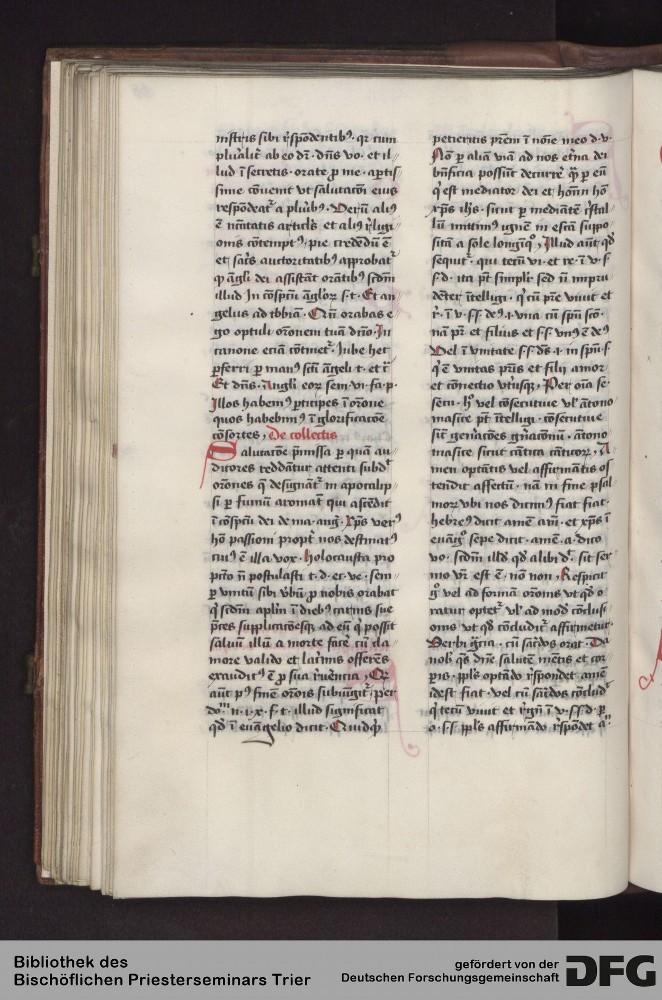 nistris sibi r̃spondentibꝰ · qr cum
plural’r̃ ab eo dr̃ · dñs vo · et il
lud ĩ secretis · orate ꝑ me · aꝑtis
sime cõuenit vt salutacõi eius
respõdeatr̃ a pluribꝰ · Verũ aliꝰ
ẽ et aliꝰ religi
onis cõtemptꝰ, pie credẽdũ ẽ
et sacris auctoritatibꝰ approbatr̃
ꝙ ãgli dei assistãt orãtibꝰ scdm
illud In cõspcũ ãglor̃ · s · t · Et an
gelus ad thbiam · Cũ orabas e
go optuli oronem tuã dño · In
canone eciã cõtinetr̃ · Iube hec
ꝑferri ꝑ manꝰ sc̃i ãgeli t · et c̃
Et dñs · Angli eor̃ sem · vi · fa · p ·
Illos habemꝰ ꝑticipes ĩ orõne
quos habebimꝰ ĩ glorificacõe
cõsortes, De collectis
Salutacõe p̃missa ꝑ quã au
ditores reddãtur attenti subdr̃
orões q̃ designãtr̃ in apocalip
si ꝑ fumũ aromatũ qui ascẽdit
ĩ cõspcũ dei de ma · ang̃ · xp̃s verꝰ
hõ passioni propter̃ nos destinatꝰ
cuiꝰ ẽ illa vox · holocausta pro
pcc̃o nõ postulasti t · d · ec · ve · sem
ꝑ vnitũ sibi v̓bũ ꝓ nobis orabat
q̓ scdm aplm̃ ĩ diebꝰ carnis sue
p̃ces supplicacõesqꝫ ad eũ q̓ possit
saluũ illũ a morte facẽ cũ cla
more valido et lac̓mis offerẽs
exauditꝰ ẽ ꝓ sua r̃uẽncia, Qr̃
aũt pꝰ finẽ orõis subiũgitr̃, per
do · n · i · x · f · t · illud significat
qd̓ ĩ euãgelio dicit · Quidquid
petieritis prẽm ĩ nõie meo d · v ·
Nõ ꝑ aliã viã ad nos et̓na dei
bn̓ficia possũt decurrẽ q̃ ꝑ eũ
q̓ est mediator dei et hoĩm hõ
xp̃s ihs · sicut ꝑ mediãtẽ cristal
lũ mittimꝰ ignẽ in escã suppo
sitã a sole longinqͦ, Illud aũt qd̓
sequitr̃ · qui tecũ vi · et re · ĩ v · s
s · d · ita p̃t simplr̃ sed nõ impru
dẽter ĩtelligi · q̓ cũ pr̃e viuit et
r̃ · ĩ v · ss · deꝰ · i · vna cũ spũ scõ ·
nã pr̃ et filius et s · s vnꝰ ẽ deꝰ
Vel ĩ vnitate s · s · ds̃ · i · in spũ · s ·
q̓ ẽ vnitas pr̃is et filij amor
et cõnectio vtriusqꝫ, Per oĩa se ·
secũ · hꝰ vel cõsecutiue vl’ ãtono
masice p̃t ĩtelligi · cõsecutiue
sic̃ genr̃acões gñacionũ · ãtono
masice sicut cãtica cãticor̃, A
men optãtis vel affirmãtis os
tendit affectũ · nã in fine psal
mor̃ vbi nos dicimꝰ fiat fiat ·
hebreꝰ dicit amẽ am̃ · et xp̃s ĩ
euãgͦ sepe dicit · amẽ · a · dico
vo · scdm illd̓ qd̓ alibi dr̃ · sit ser
mo vr̃ est ẽ · nõ non, Respicit
gͦ vel ad formã orõnis vt qd̓ o
ratur optetr̃ vl’ ad modũ cõclusi
onis vt qd̓ cõcluditr̃ affirmetur ·
Verbi gr̃cia · cũ sac̓dos orat · Da
nob̓ qs̃ dñe salutẽ mẽtis et cor
ꝑis · ppl̃s optãdo r̓spondet amẽ
idest fiat · vel cũ sac̓dos cõcludr̃
q̓ tecũ viuit et r̃gñ ĩ v · ss · d · ꝑ
o · s · s · ppl̃s affirmãdo r̓spõdet a
Bibliothek des
Bischöflichen Priesterseminars Trier
gefördert von der
Deutschen Forschungsgemeinschaft
DFG